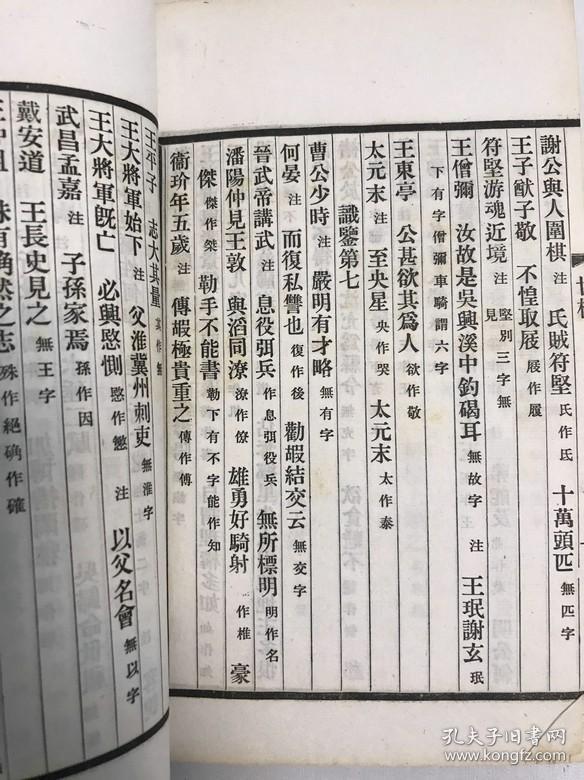 謝公與人圍棋 注 氏賊符堅 氏作氐 十萬頭匹 無匹字
王子猷子敬 不惶取屐 屐作履
符堅游魂近境 注 堅別三字無
見
王僧彌 汝故是吳興溪中釣碣耳 無故字 注 王珉謝玄 珉
下有字僧彌車騎謂六字
王東亭 公甚欲其爲人 欲作敬
太元末 注 至央星 央作哭 太元末 太作泰
識鑒第七
曹公少時 注 嚴明有才略 無有字
何晏 注 而復私讐也 復作後 勸嘏結交云 無交字
晉武帝講武 注 息役弭兵 作息弭役兵 無所標明 明作名
潘陽仲見王敦 注 與滔同潦 潦作僚 雄勇好騎射 作椎 豪
傑 傑作桀 勒手不能書 勒下有不字能作知
衞玠年五歲 注 傳嘏極貴重之 傳作傅
王平子 志大其量 其作無
王大將軍始下 注 父淮冀州刺吏 無淮字
王大將軍旣亡 必興愍惻 愍作愆 注 以父名會 無以字
武昌孟嘉 注 子孫家焉 孫作因
戴安道 王長史見之 無王字
殊有确然之志 殊作絕确作確
孔夫子旧书网
www.kongfz.com